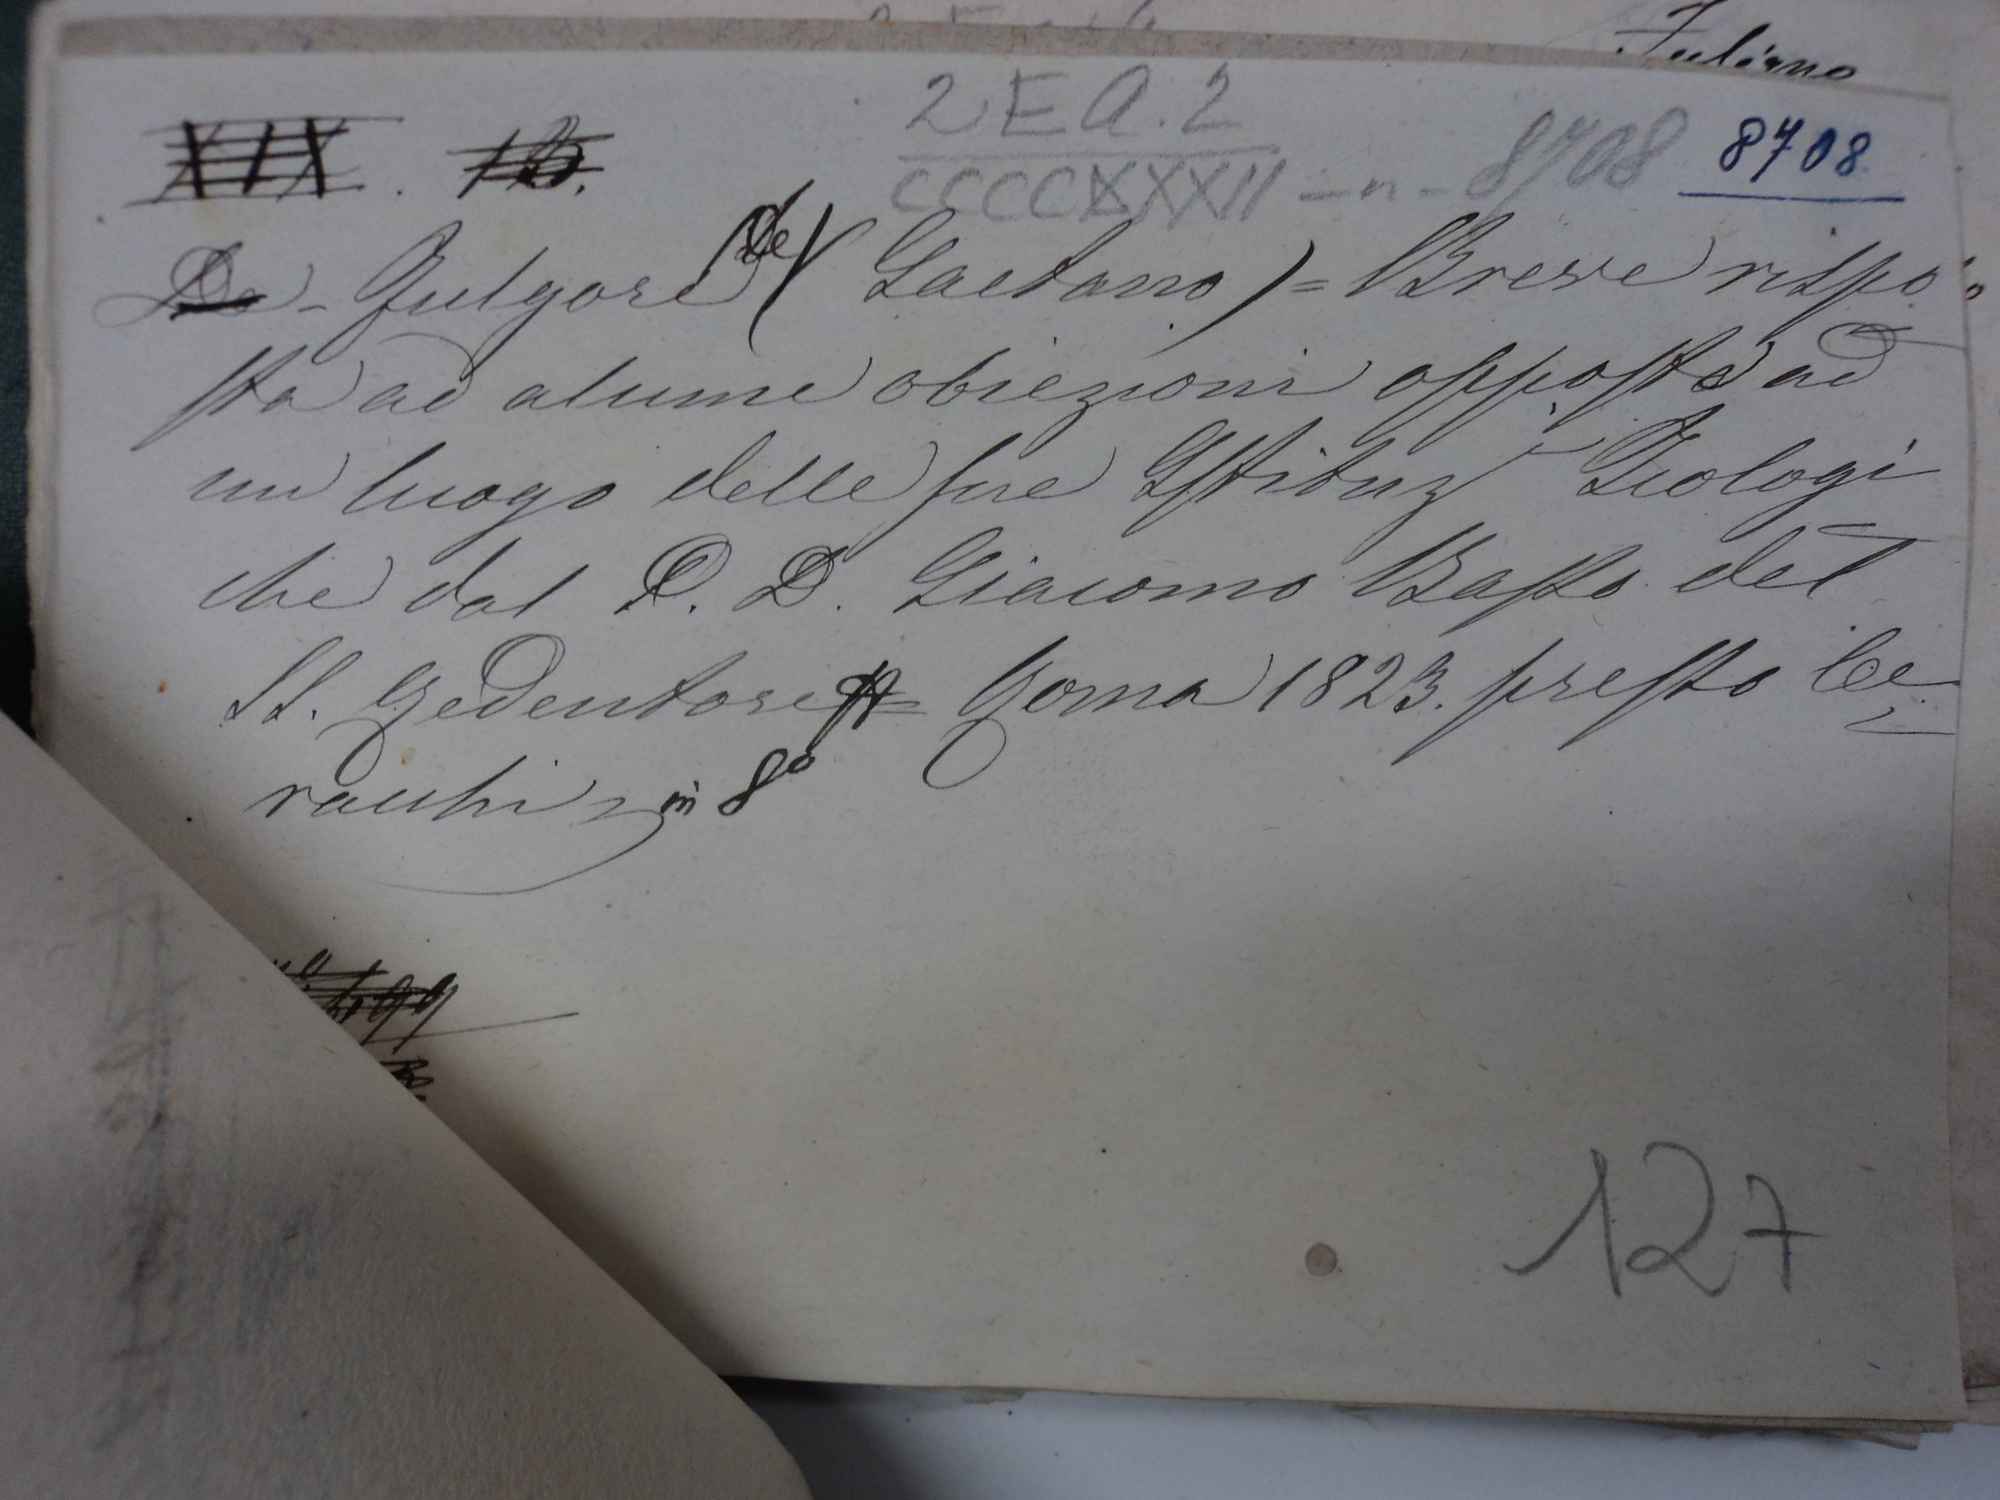 Juliano
2 E A. 2
XIX. 13.
CCCCXXXII - n - 8708 8708
De - Fulgore (De) (Gaetano) = Breve rispo
sta ad alcune obiezioni opposte ad
un luogo delle sue Istituz Teologi
che dal P. D. Giacomo Basso del
SS. Redentore = Roma 1823. presso Ce
racchi = in 8°
127